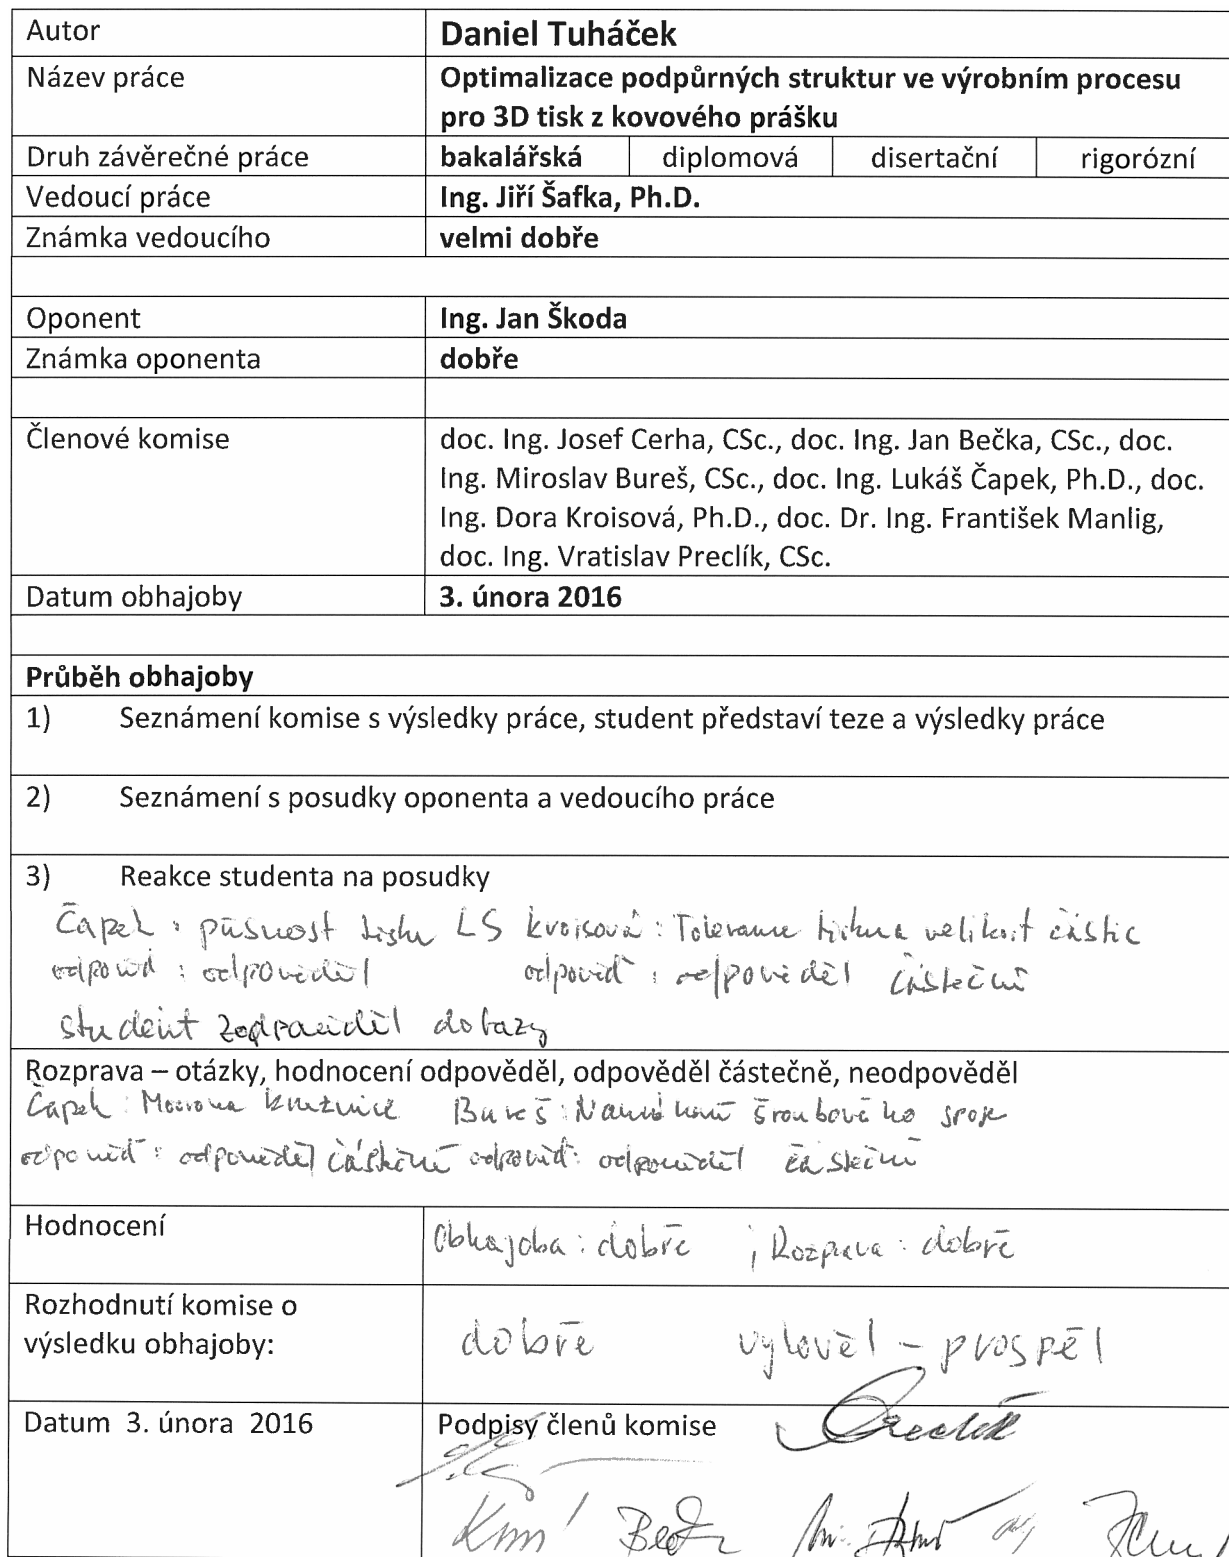 Autor Daniel Tuháček
Název práce Optimalizace podpůrných struktur ve výrobním procesu
pro 3D tisk z kovového prášku
Druh závěrečné práce bakalářská diplomová disertační rigorózní
Vedoucí práce Ing. Jiří Šafka, Ph.D.
Známka vedoucího velmi dobře
Oponent Ing. Jan Škoda
Známka oponenta dobře
Členové komise doc. Ing. Josef Cerha, CSc., doc. Ing. Jan Bečka, CSc., doc.
Ing. Miroslav Bureš, CSc., doc. Ing. Lukáš Čapek, Ph.D., doc.
Ing. Dora Kroisová, Ph.D., doc. Dr. Ing. František Manlig,
doc. Ing. Vratislav Preclík, CSc.
Datum obhajoby 3. února 2016
Průběh obhajoby
1) Seznámení komise s výsledky práce, student představí teze a výsledky práce
2) Seznámení s posudky oponenta a vedoucího práce
3) Reakce studenta na posudky
Čapek : tisku Kroisová : Tolerance velikost částic
odpověď : odpověděl odpověď : odpověděl částečně
student zodpověděl dotazy
Rozprava – otázky, hodnocení odpověděl, odpověděl částečně, neodpověděl
Čapek : Bureš : šroubového spoje
odpověď : odpověděl částečně odpověď : odpověděl částečně
Hodnocení Obhajoba : dobře ; Rozprava : dobře
Rozhodnutí komise o
výsledku obhajoby: dobře vyhověl – prospěl
Datum 3. února 2016 Podpisy členů komise